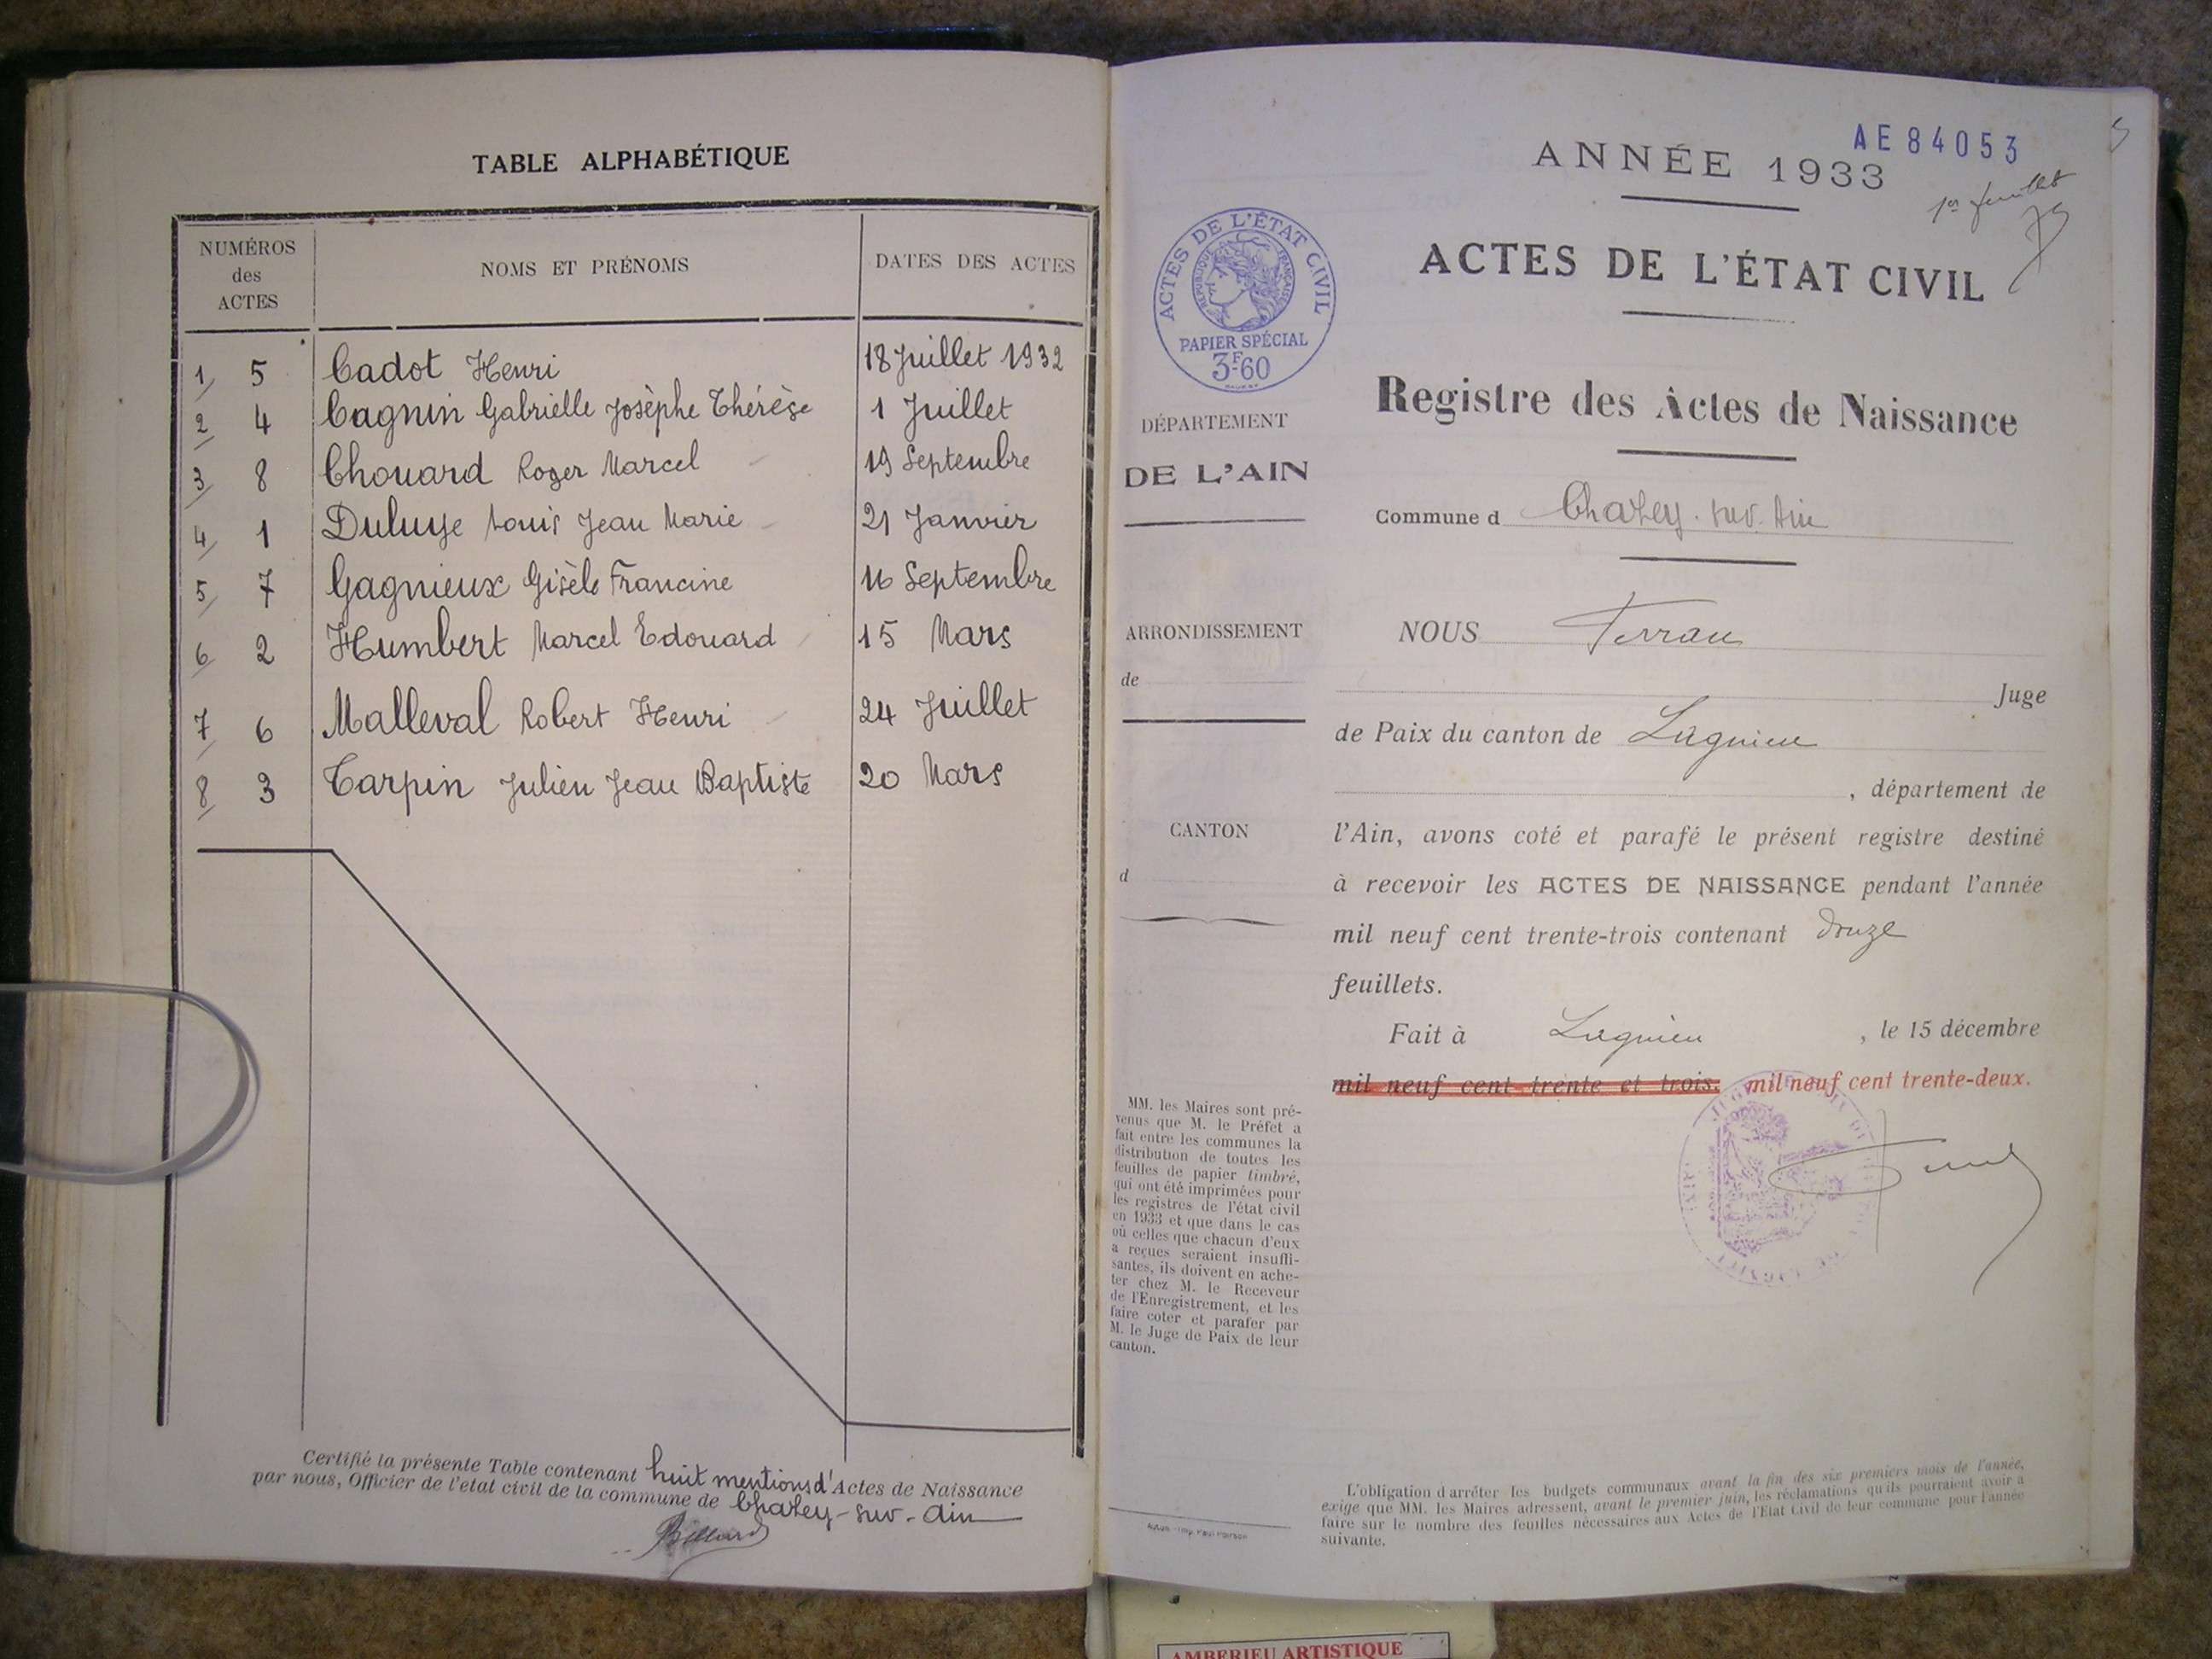 TABLE ALPHABÉTIQUE
NUMÉROS
des
ACTES
NOMS ET PRÉNOMS
DATES DES ACTES
1/ 5 Cadot Henri 18 Juillet 1932
2/ 4 Cagnin Gabrielle Josèphe Thérèse 1 Juillet
3/ 8 Chouard Roger Marcel 19 Septembre
4/ 1 Duluye Louis Jean Marie 21 Janvier
5/ 7 Gagnieux Gisèle Francine 16 Septembre
6/ 2 Humbert Marcel Edouard 15 Mars
7/ 6 Malleval Robert Henri 24 Juillet
8/ 3 Tarpin Julien Jean Baptiste 20 Mars
Certifié la présente Table contenant huit mentions d'Actes de Naissance
par nous, Officier de l'etat civil de la commune de Chazey-sur-Ain
AE 84053
ANNÉE 1933
1er feuillet
ACTES DE L'ÉTAT CIVIL
ACTES DE L'ÉTAT CIVIL
RÉPUBLIQUE FRANÇAISE
PAPIER SPÉCIAL
3F60
Registre des Actes de Naissance
DÉPARTEMENT
DE L'AIN
Commune d Chazey-sur-Ain
ARRONDISSEMENT
de
NOUS Ferrau
Juge
de Paix du canton de Lagnieu
, département de
CANTON
d
l'Ain, avons coté et parafé le présent registre destiné
à recevoir les ACTES DE NAISSANCE pendant l'année
mil neuf cent trente-trois contenant douze
feuillets.
Fait à Lagnieu , le 15 décembre
mil neuf cent trente et trois. mil neuf cent trente-deux.
MM. les Maires sont pré-
venus que M. le Préfet a
fait entre les communes la
distribution de toutes les
feuilles de papier timbré,
qui ont été imprimées pour
les registres de l'état civil
en 1933 et que dans le cas
où celles que chacun d'eux
a reçues seraient insuffi-
santes, ils doivent en ache-
ter chez M. le Receveur
de l'Enregistrement, et les
faire coter et parafer par
M. le Juge de Paix de leur
canton.
L'obligation d'arrêter les budgets communaux avant la fin des six premiers mois de l'année,
exige que MM. les Maires adressent, avant le premier juin, les réclamations qu'ils pourraient avoir à
faire sur le nombre des feuilles nécessaires aux Actes de l'Etat Civil de leur commune pour l'année
suivante.
AMBERIEU ARTISTIQUE